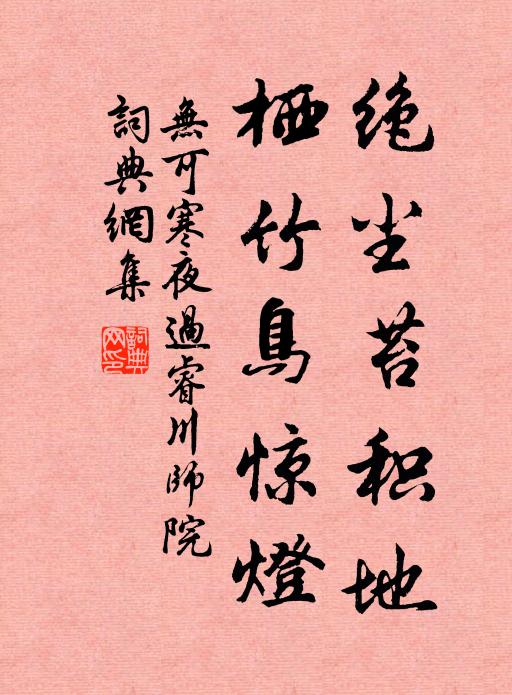 绝尘苔积地
栖竹鳥惊燈
無可寒夜過睿川師院
詞典網集
詞典网印